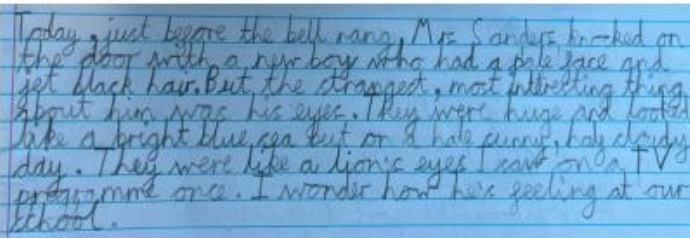 Today, just before the bell rang, Mrs Sanders knocked on
the door with a new boy who had a pale face and
jet black hair. But, the strangest, most intresting thing
about him was his eyes. They were huge and looked
like a bright blue sea but on a hale sunny, haly cloudy
day. They were like a lion's eyes I saw on a TV
programme once. I wonder how he's feeling at our
school.